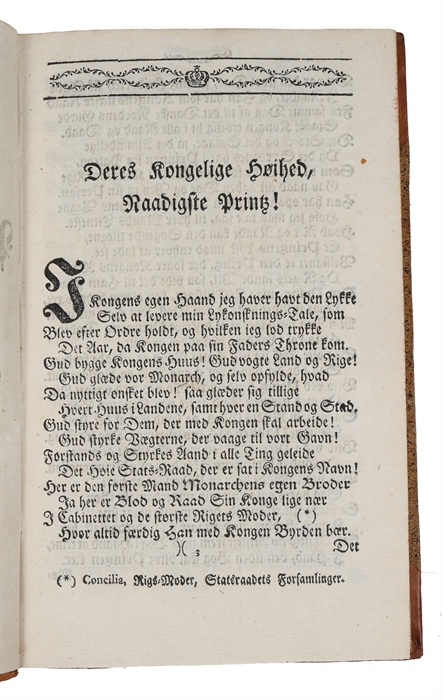 Deres Kongelige Høihed,
Naadigste Printz!
I Kongens egen Haand jeg haver havt den Lykke
Selv at levere min Lykønsknings-Tale, som
Blev efter Ordre holdt, og hvilken jeg lod trykke
Det Aar, da Kongen paa sin Faders Throne kom.
Gud bygge Kongens Huus! Gud vogte Land og Rige!
Gud glæde vor Monarch, og selv opfylde, hvad
Da nyttigt ønsket blev! saa glæder sig tillige
Hvert Huus i Landene, samt hver en Stand og Stad.
Gud styre for Dem, der med Kongen skal arbeide!
Gud styrke Vægterne, der vaage til vort Gavn!
Forstands og Styrkes Aand i alle Ting geleide
Det Høie Stats-Raad, der er sat i Kongens Navn!
Her er den første Mand Monarchens egen Broder
Ja her er Blod og Raad Sin Konge lige nær
I Cabinettet og de største Rigets Moder, (*)
Hvor altid færdig Han med Kongen Byrden bær.
)( 3 Det
(*) Concilia, Rigs-Moder, Statsraadets Forsamlinger.